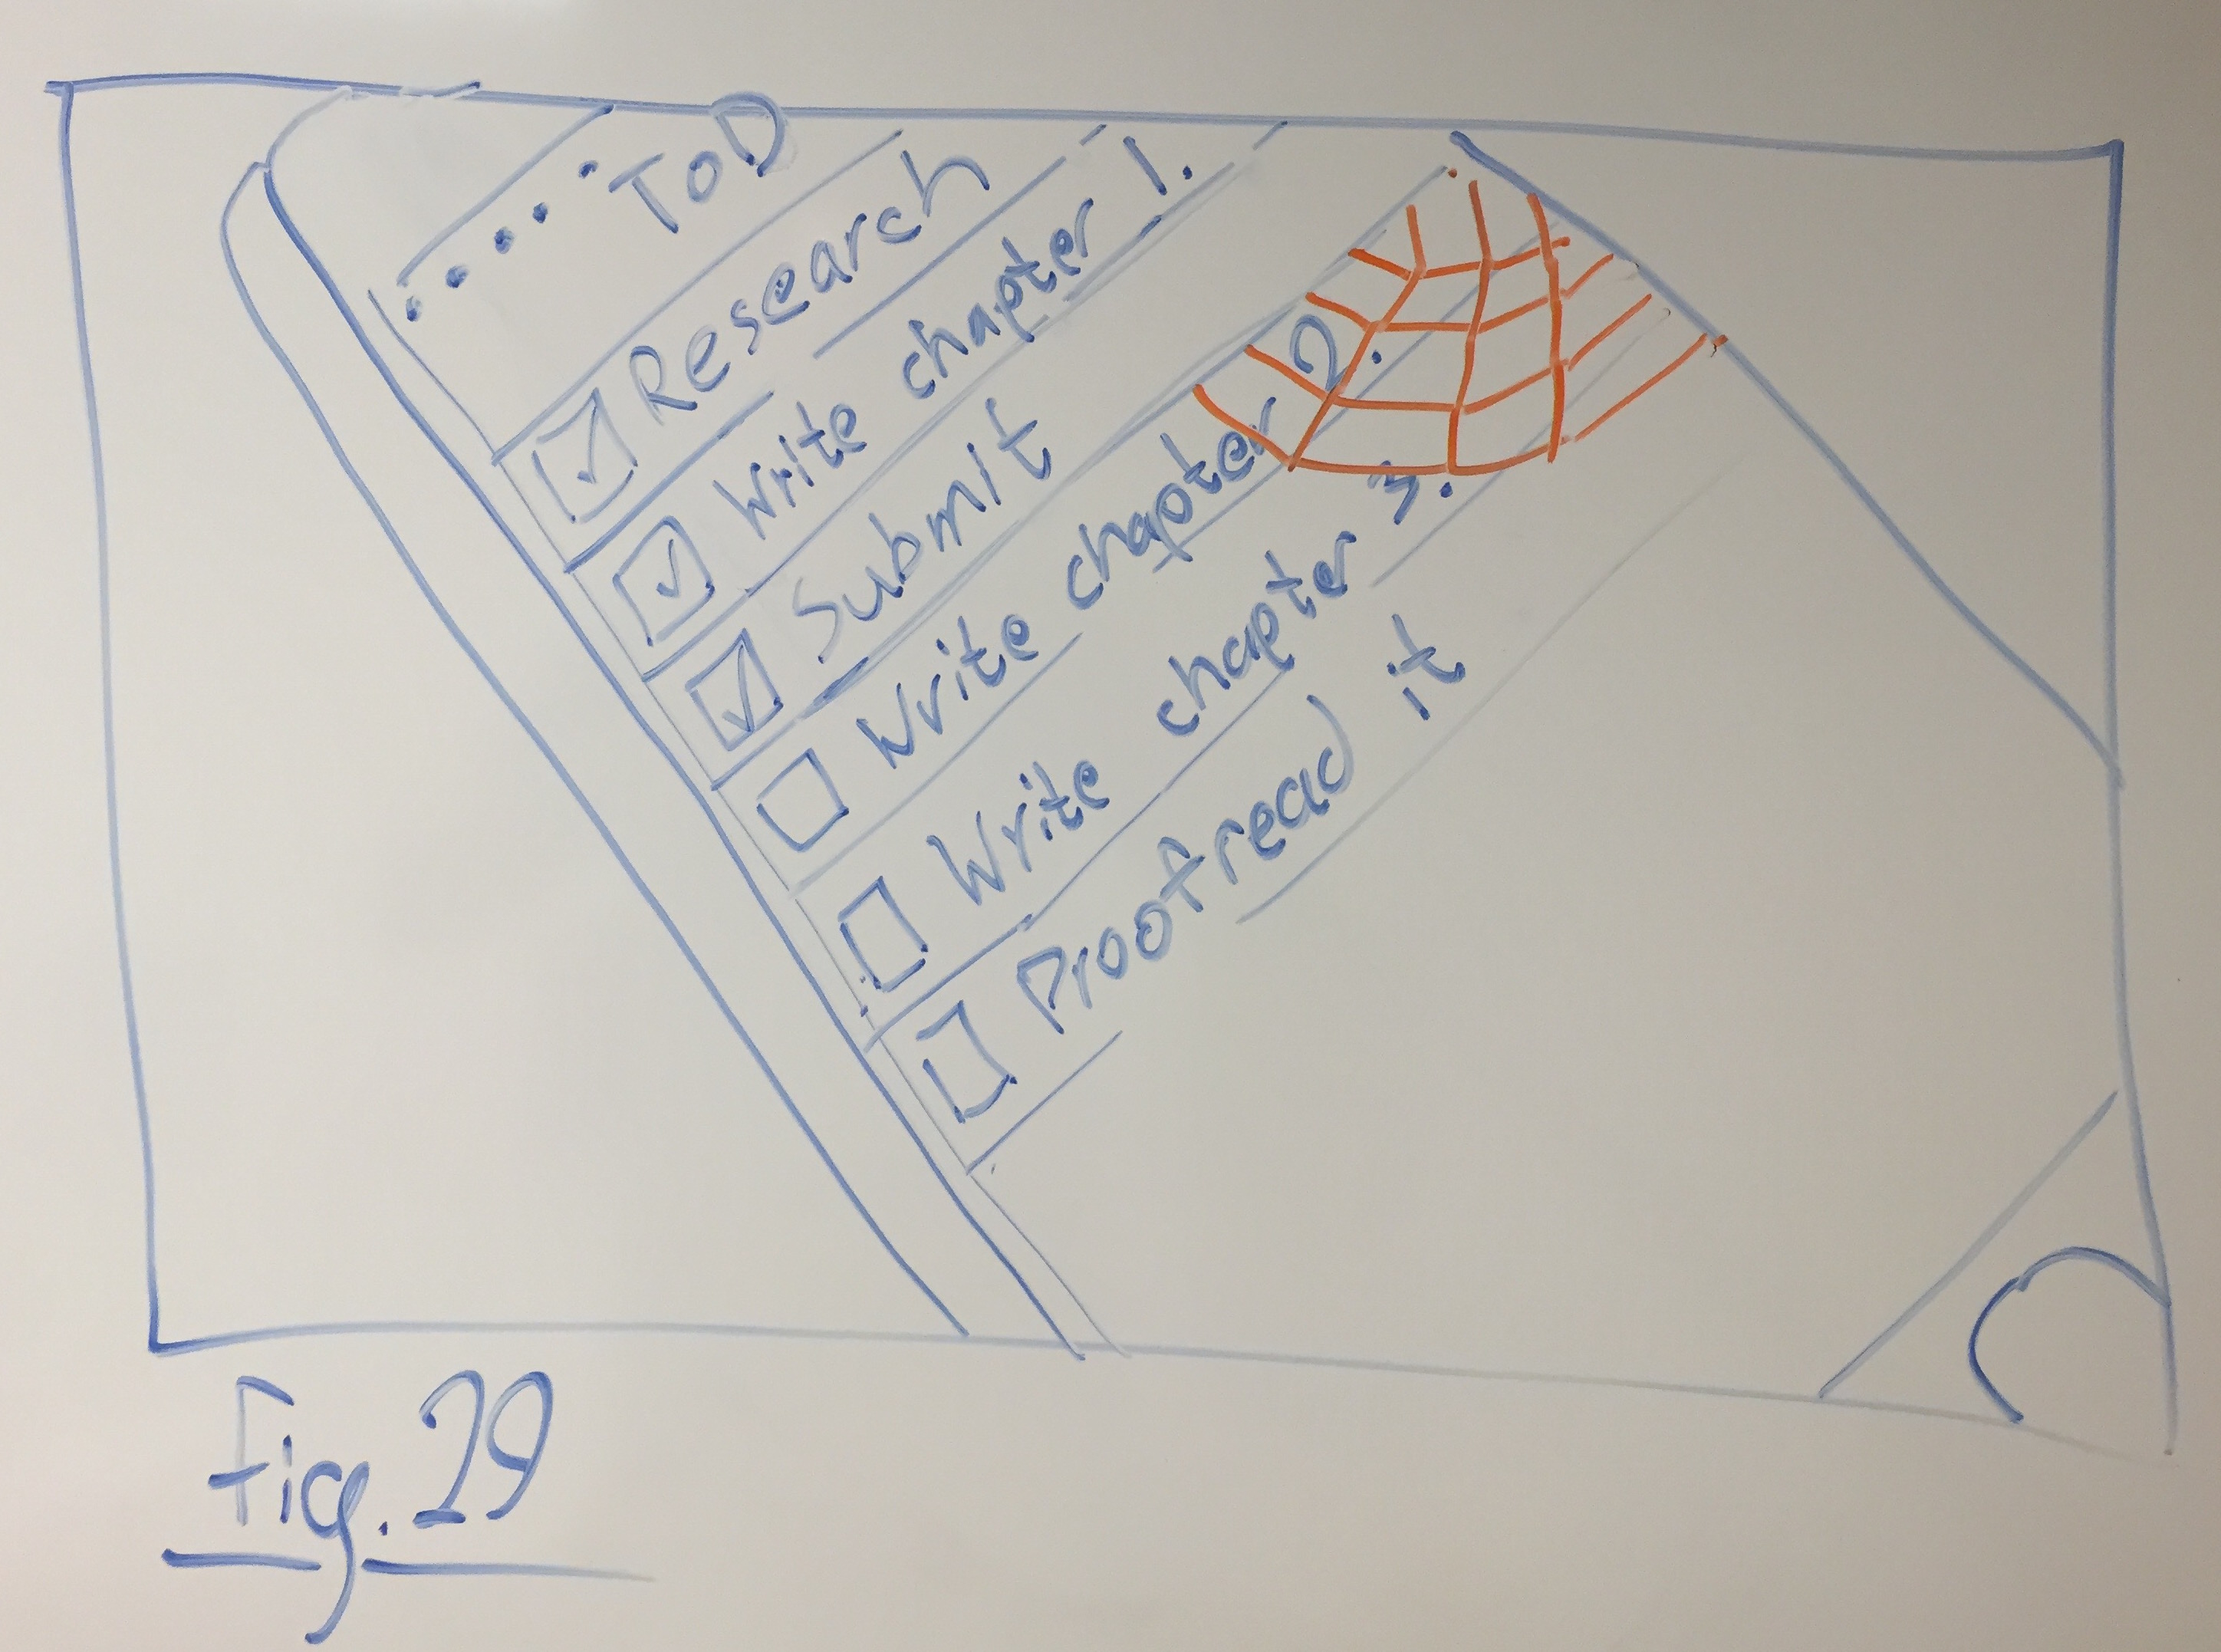 ToD
Research
Write chapter 1.
Submit
Write chapter 2.
Write chapter 3.
Proofread it
Fig. 29